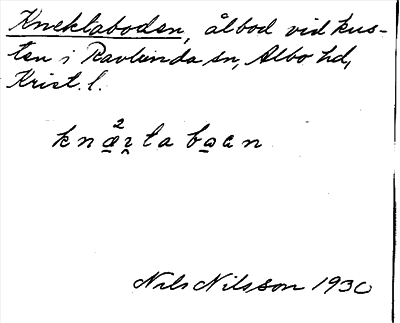 Kneklaboden, ålbod vid kus-
ten i Ravlunda sn, Albo hd,
Krist. l.
Nils Nilsson 1930